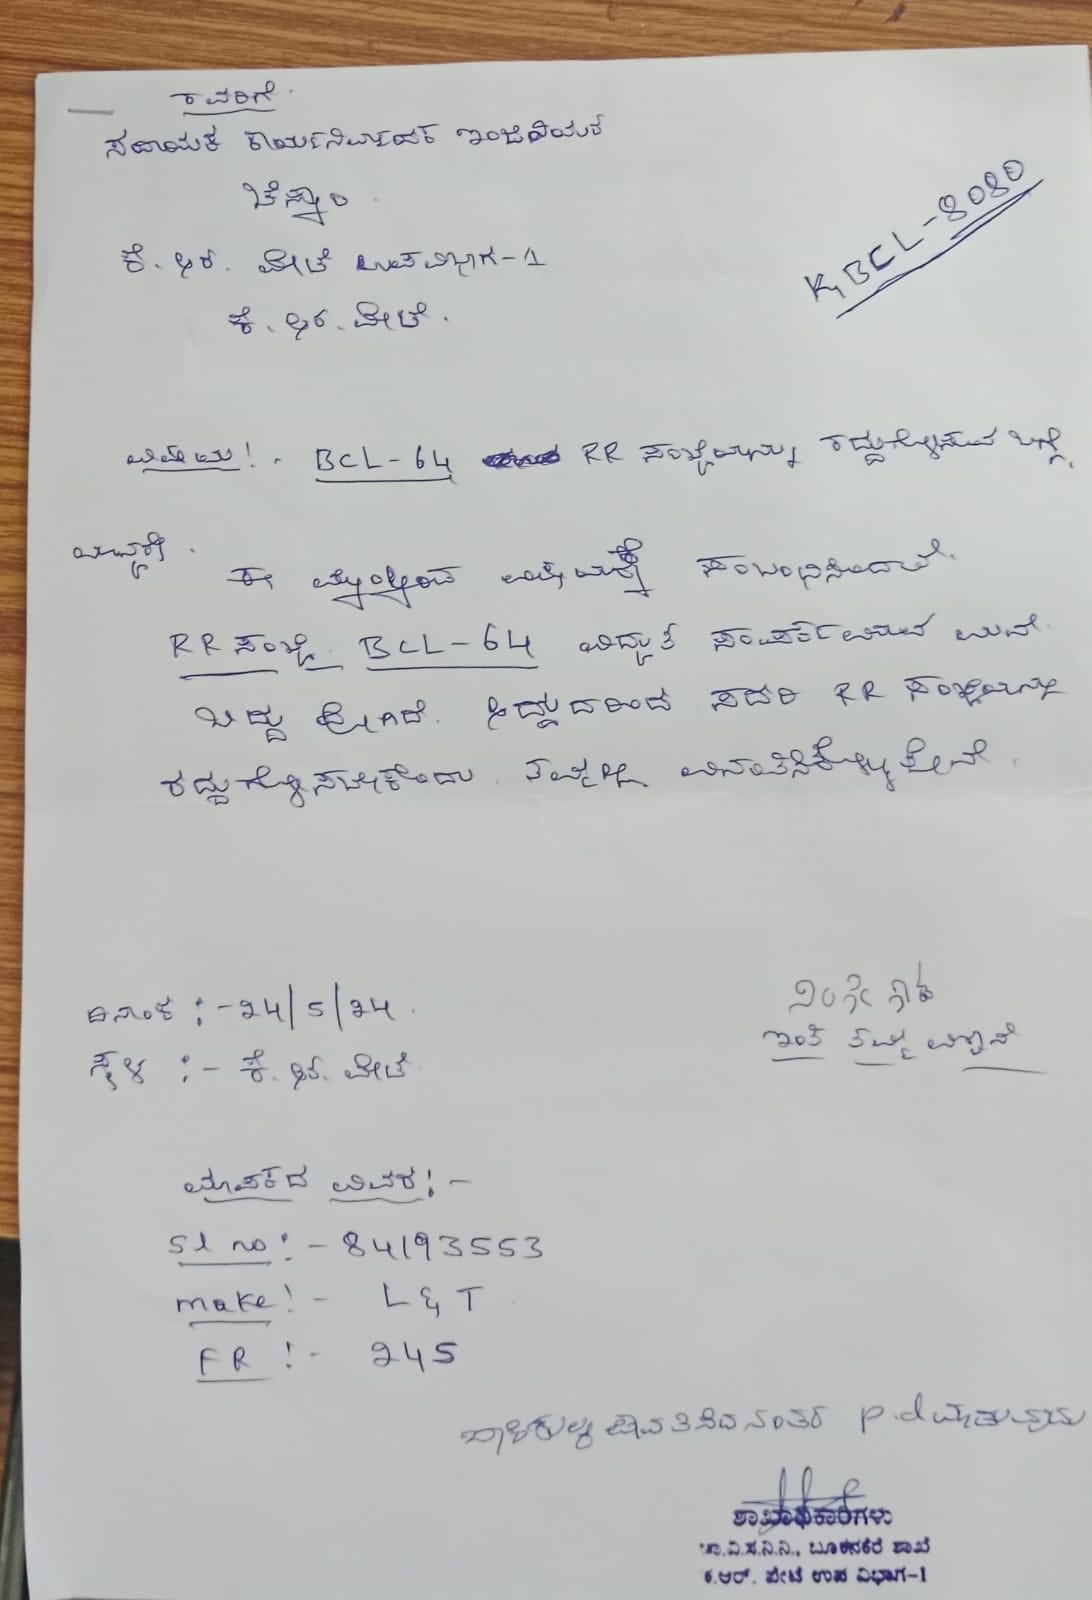 ರವರಿಗೆ
ಸಹಾಯಕ ಕಾರ್ಯನಿರ್ವಾಹಕ ಇಂಜಿನಿಯರ್
ಚೆಸ್ಕಾಂ
ಕೆ. ಆರ್. ಪೇಟೆ ಉಪವಿಭಾಗ-1
ಕೆ. ಆರ್. ಪೇಟೆ.
K, BCL-8080
ವಿಷಯ:- BCL-64 RR ಸಂಖ್ಯೆಯನ್ನು ರದ್ದುಗೊಳಿಸುವ ಬಗ್ಗೆ
ಮಾನ್ಯರೇ.
ಈ ಮೇಲ್ಕಂಡ ವಿಷಯಕ್ಕೆ ಸಂಬಂಧಿಸಿದಂತೆ.
RR ಸಂಖ್ಯೆ BCL-64 ವಿದ್ಯುತ್ ಸಂಪರ್ಕವಿರುವ ಮನೆ
ಬಿದ್ದು ಹೋಗಿದೆ. ಆದ್ದುದರಿಂದ ಸದರಿ RR ಸಂಖ್ಯೆಯನ್ನು
ರದ್ದುಗೊಳಿಸಬೇಕೆಂದು ತಮ್ಮಲ್ಲಿ ವಿನಂತಿಸಿಕೊಳ್ಳುತ್ತೇನೆ.
ದಿನಾಂಕ :- 24/5/24.
ಸ್ಥಳ :- ಕೆ. ಆರ್. ಪೇಟೆ
ಇಂತಿ ತಮ್ಮ ವಿಶ್ವಾಸಿ
ಮಾಪಕದ ವಿವರ:-
Sl no:- 84193553
make:- L&T
FR :- 245
ಬಾಕಿ ಪಾವತಿಸಿದ ನಂತರ P.d ಮಾಡುವುದು
ಶಾಖಾಧಿಕಾರಿಗಳು
ಚಾ.ವಿ.ಸ.ನಿ.ನಿ., ಬೂಕನಕೆರೆ ಶಾಖೆ
ಕೆ.ಆರ್. ಪೇಟೆ ಉಪ ವಿಭಾಗ-1